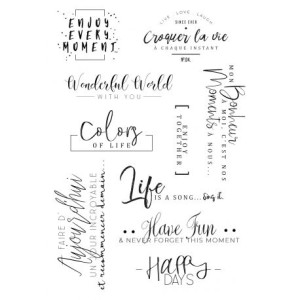 ENJOY
EVERY
MOMENT
LIVE LOVE LAUGH
Croquer la vie
À CHAQUE INSTANT
Wonderful World
WITH YOU
Colors
OF LIFE
[ ENJOY
TOGETHER ]
MON
Bonheur
À MOI, C'EST NOS
Moments
À NOUS...
FAIRE D'
Aujourd'hui
UN JOUR INCROYABLE
et recommencer demain...
Life
IS A SONG... Sing it.
Have Fun
& NEVER FORGET THIS MOMENT
Happy
DAYS